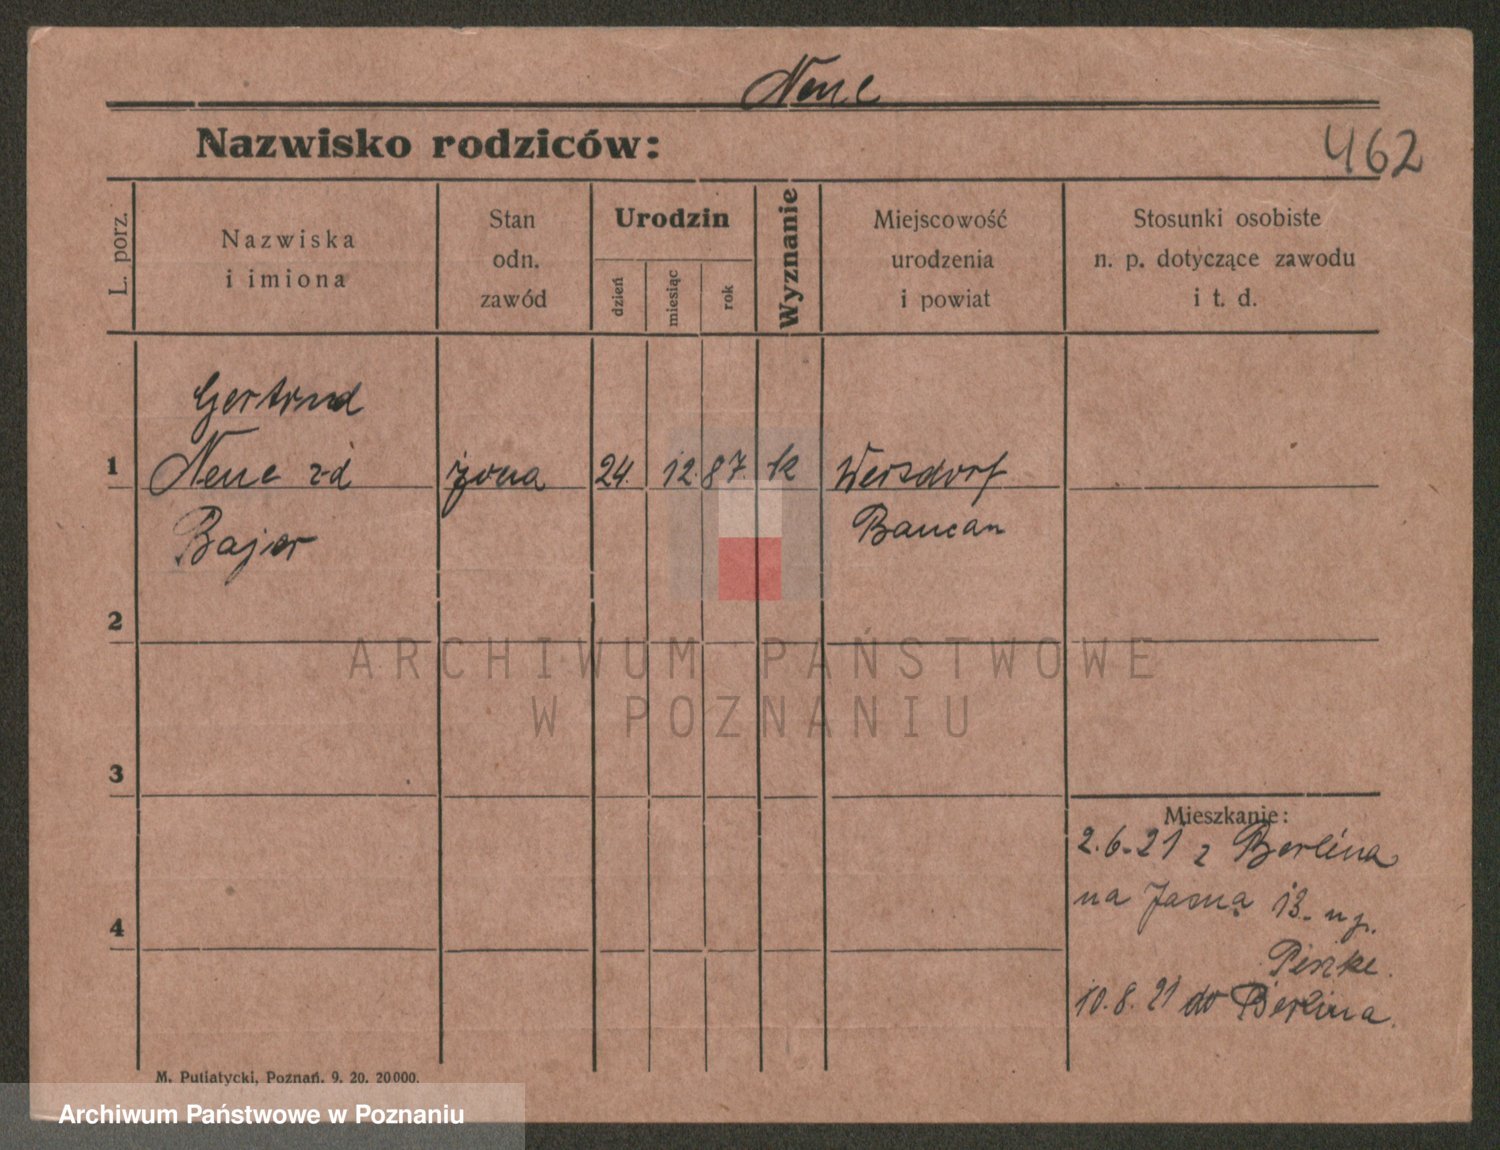 Nene
Nazwisko rodziców:
462
L. porz.
Nazwiska
i imiona
Stan
odn.
zawód
Urodzin
dzień
miesiąc
rok
Wyznanie
Miejscowość
urodzenia
i powiat
Stosunki osobiste
n. p. dotyczące zawodu
i t. d.
Gertrud
1 Nene z d żona 24. 12. 87. k Wersdorf
Bajer Baucan
2
3
4
Mieszkanie:
2.6.21 z Berlina
na Jasną 13. u p.
10.8.21 do Berlina.
M. Putiatycki, Poznań. 9. 20. 20000.
ARCHIWUM PAŃSTWOWE
W POZNANIU
Archiwum Państwowe w Poznaniu